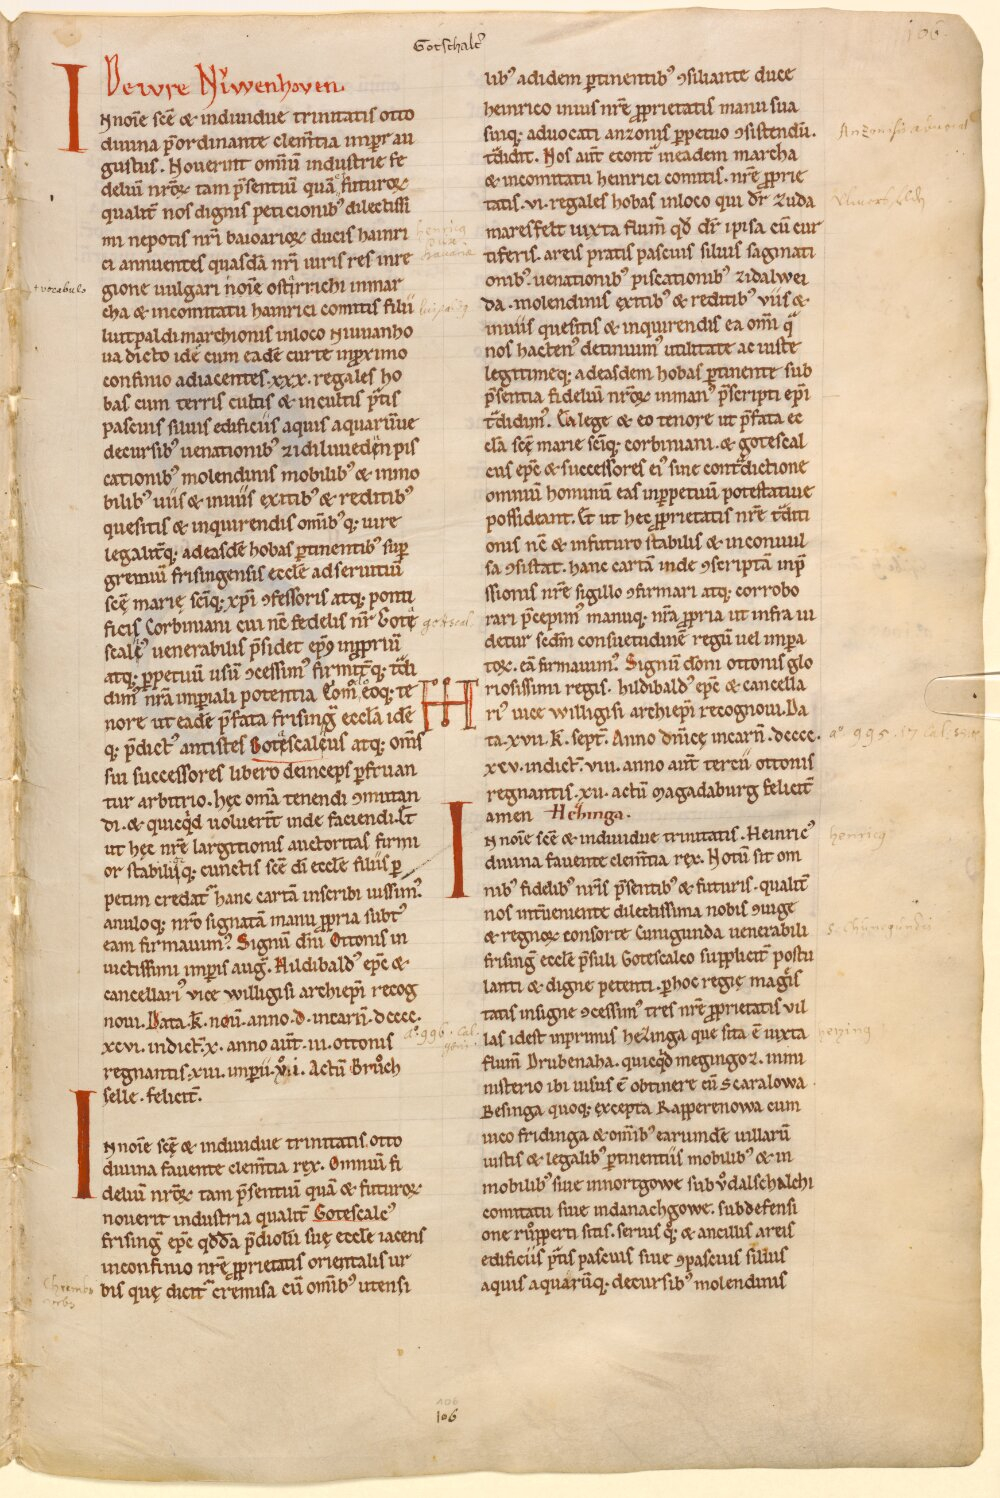 Gotschalc᷒
106
Dewre Niwenhoven.
In noı̅e sc̅e & indiuidue trinitatis otto
diuina p̅ordinante clem̅tia imp̅r au
gustus. Nouerint om̅iu̅ industrie fe
deliu̅ nr̅oꝝ tam p̅sentiu̅ qua̅ & futuroꝝ
qualit̅ nos dignis peticionib᷒ dilectissi
mi nepotis nr̅i baioarioꝝ ducis hainri
ci annuentes quasda̅ nr̅i iuris res in re
gione uulgari noı̅e ostirrichi in mar
cha & in comitatu hainrici comitis filii
liutpaldi marchionis in loco Niuuanho
ua dicto ide̅ cum eade̅ curte in ꝓximo
confinio adiacentes .xxx. regales ho
bas cum terris cultis & incultis p̅tis
pascuis siluis edificiis aquis aquaru̅ue
decursib᷒ uenationib᷒ zidiluueden pis
cationib᷒ molendinis mobilib᷒ & inmo
bilib᷒ uiis & inuiis exitib᷒ & reditib᷒
quesitis & inquirendis om̅ib᷒q; iure
legalit̅q; ad easde̅ hobas ꝑtinentib᷒ sup̅
gremiu̅ frisingensis eccle̅ ad seruitiu̅
sce̅ marie̜ sci̅q; xp̅i ꝯfessoris atq; ponti
ficis Corbiniani cui nc̅ fedelis nr̅ Gote̜
scalc᷒ uenerabilis p̅sidet ep̅c᷒ in ꝓpriu̅
atq; ꝑpetuu̅ usu̅ ꝯcessim᷒ firmit̅q; t̅di
dim᷒ nr̅a imperiali potentia Com̅ eoq; te
nore ut eade̅ p̅fata frising̅ eccla̅ ide̅
q; p̅dict᷒ antistes Gote̜scalcus atq; om̅s
sui successores libero deinceps ꝑfruan
tur arbitrio. he̜c om̅a tenendi ꝯmutan
di. & quicq̅d uoluerit̅ inde faciendi. Et
ut he̜c nr̅e largitionis auctoritas firmi
or stabiliq; cunctis sce̅ di̅ eccle̅ filiis ꝑ
petim credat᷒ hanc carta̅ inscribi iussim᷒.
anuloq; nr̅o signata̅ manu ꝓpria subt᷒
eam firmauim᷒. Signu̅ dn̅i Ottonis in
uictissimi imp̅is aug̅. Hildibald᷒ ep̅c &
cancellari᷒ vice willigisi archiep̅i recog
noui. Data k̅. nou̅. anno .d. incarn̅. dcccc.
xcvi. indict̅. x. anno aut̅. iii. ottonis
regnantis. xiii. imp̅ii. vii. Actu̅ Bruͦch
selle. felicit̅.
In noı̅e sce̜̅ & indiuidue trinitatis. otto
diuina fauente clem̅tia rex. Omniu̅ fi
deliu̅ nr̅oꝝ tam p̅sentiu̅ qua̅ & futuroꝝ
nouerit industria qualit̅ Gotescalc᷒
frising̅ ep̅c qd̅da̅ p̅diolu̅ sue̜ eccle̅ iacens
in confinio nr̅e̜ ꝓprietatis orientalis ur
bis que̜ dicit᷒ cremisa cu̅ om̅ib᷒ utensi
lib᷒ ad idem ꝑtinentib᷒ ꝯsiliante duce
heinrico in ius nr̅e ꝓprietatis manu sua
suiq; aduocati anzonis ꝑpetuo ꝯsistendu̅.
t̅didit. Nos aut̅ econt̅ in eadem marcha
& in comitatu heinrici comitis. nr̅e ꝓprie
tatis .vi. regales hobas in loco qui dr̅ zuda
maresfelt iuxta flum̅ qd̅ dr̅ ipisa cu̅ cur
tiferis. areis pratis pascuis siluis saginati
onib᷒. uenationib᷒ piscationib᷒ zidalwei
da. molendinis exitib᷒ & reditib᷒ uiis &
inuiis quesitis & inquirendis ea om̅i q̅
nos hacten᷒ detinuim᷒ utilitate ac iuste
legitimeq; ad easdem hobas ꝑtinente sub
p̅sentia fideliu̅ nr̅oꝝ in man᷒ p̅scripti ep̅i
t̅didim᷒. Ea lege & eo tenore ut p̅fata ec
cla̅ sce̅ marie sci̅q; corbiniani. & gotescal
cus ep̅c & successores ei᷒ sine cont̅dictione
omniu̅ hominu̅ eas in ꝑpetuu̅ potestatiue
possideant. Et ut hec ꝓprietatis nr̅e t̅diti
onis nc̅ & in futuro stabilis & inconuul
sa ꝯsistat. hanc carta̅ inde ꝯscripta̅ inp̅
ssionis nr̅e sigillo ꝯfirmari atq; corrobo
rari p̅cepim᷒ manuq; nr̅a ꝓpria ut infra ui
detur scd̅m consuetudine̅ regu̅ uel impa
toꝝ. ea̅ firmauim᷒. Signu̅ dom̅i ottonis glo
riosissimi regis. hildibald᷒ ep̅c & cancella
ri᷒ uice willigisi archiep̅i recognoui. Da
ta .xvii. k̅. sept̅. Anno dn̅ice̜ incarn̅. dcccc.
xcv. indict̅. viii. anno aut̅ tercii ottonis
regnantis. xii. actu̅ Magadaburg felicit̅
amen Hezinga.
In noı̅e sce̅ & indiuidue trinitatis. Heinric᷒
diuina fauente clem̅tia rex. Notu̅ sit om
nib᷒ fidelib᷒ nr̅is p̅sentib᷒ & futuris. qualit̅
nos int̅ueniente dilectissima nobis ꝯiuge
& regnoꝝ consorte Cunigunda uenerabili
frising̅ eccle̅ p̅suli Gotescalco supplicit̅ postu
lanti & digne petenti. ꝑ hoc regie̜ magis
tatis insigne ꝯcessim᷒ tres nr̅e ꝓprietatis uil
las id est inprimis hezinga que sita e̅ iuxta
flum̅ Drubenaha. quicq̅d megingoz. in mi
nisterio ibi uisus e̅ obtinere cu̅ Scaralowa.
Besinga quoq; excepta Rapperenowa cum
uico fridinga & om̅ib᷒ earumde̅ uillaru̅
iustis & legalib᷒ ꝑtinentiis mobilib᷒ & in
mobilib᷒ siue in nortgowe sub vͦdalschalchi
comitatu siue in danachgowe. sub defensi
one ruͦpperti sitis. seruis q̅; & ancillis areis
edificiis p̅tis pascuis siue ꝯpascuis siluis
aquis aquaru̅q; decursib᷒ molendinis
+ vocabulo
gotscal.
Anzonis aduocat
aº 995. 17 Cal. Sept.
henricq
S. Chunegundis
hezing
106